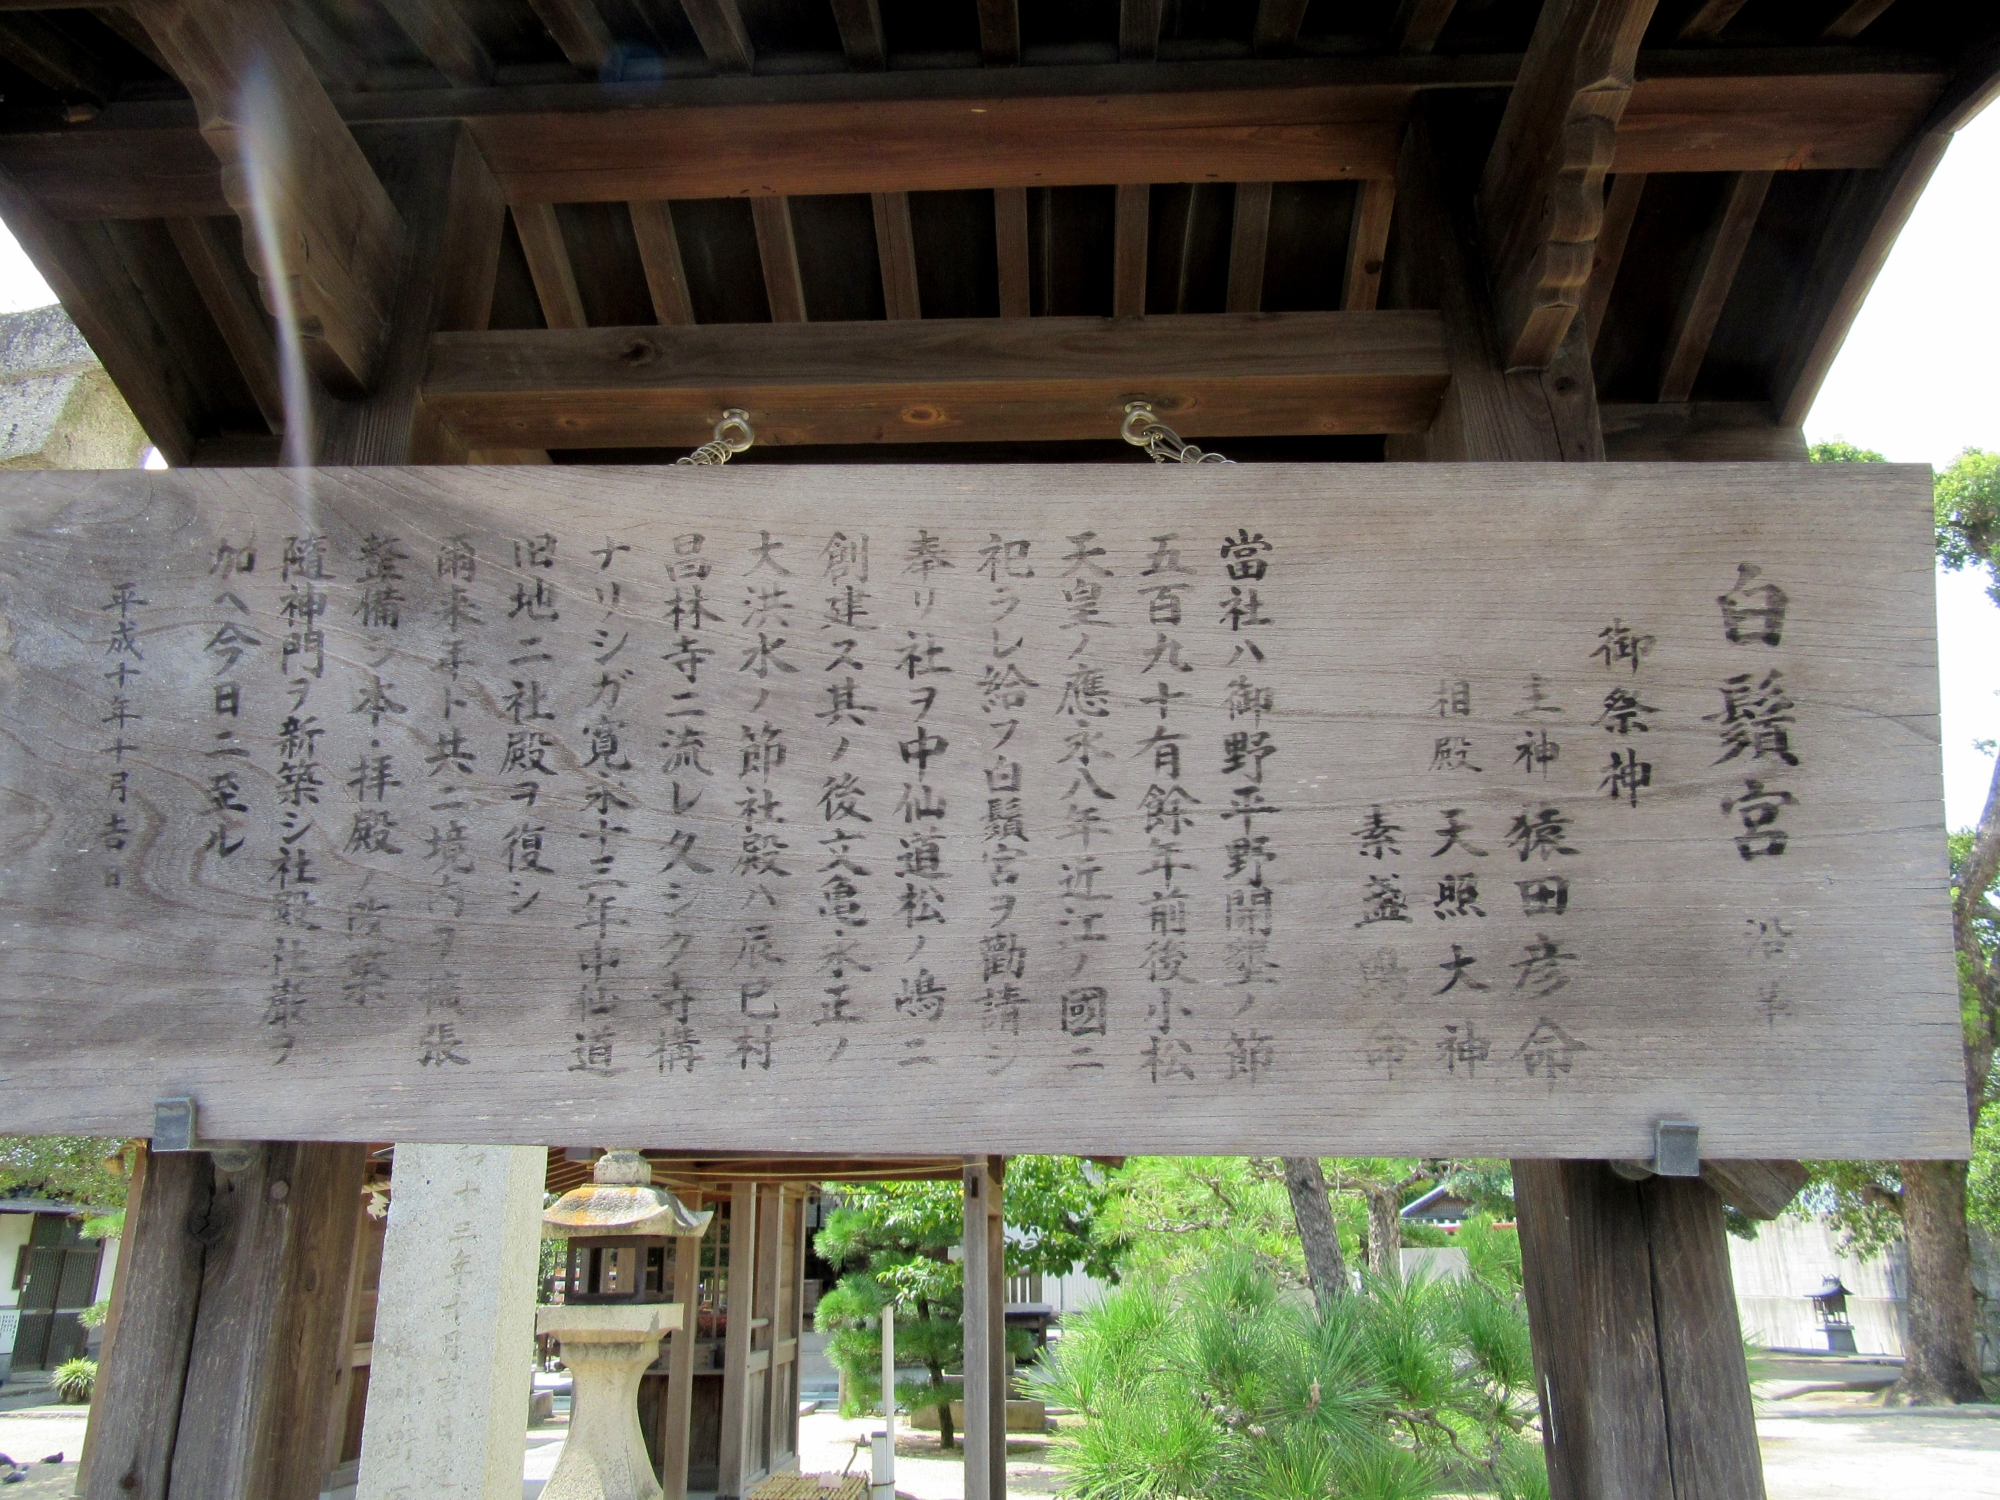 白鬚宮 沿革
御祭神
主神 猿田彦命
相殿 天照大神
素盞嗚命
當社ハ御野平野開墾ノ節
五百九十有餘年前後小松
天皇ノ應永八年近江ノ國ニ
祀ラレ給フ白鬚宮ヲ勸請シ
奉リ社ヲ中仙道松ノ嶋ニ
創建ス其ノ後文亀永正ノ
大洪水ノ節社殿ハ辰巳村
昌林寺ニ流レ久シク寺構
ナリシガ寛永十三年中仙道
旧地ニ社殿ヲ復シ
爾来年ト共ニ境内ヲ擴張
整備シ本・拝殿ノ改築
隨神門ヲ新築シ社殿社厳ヲ
加ヘ今日ニ至ル
平成十年十月吉日
十三年十月吉日